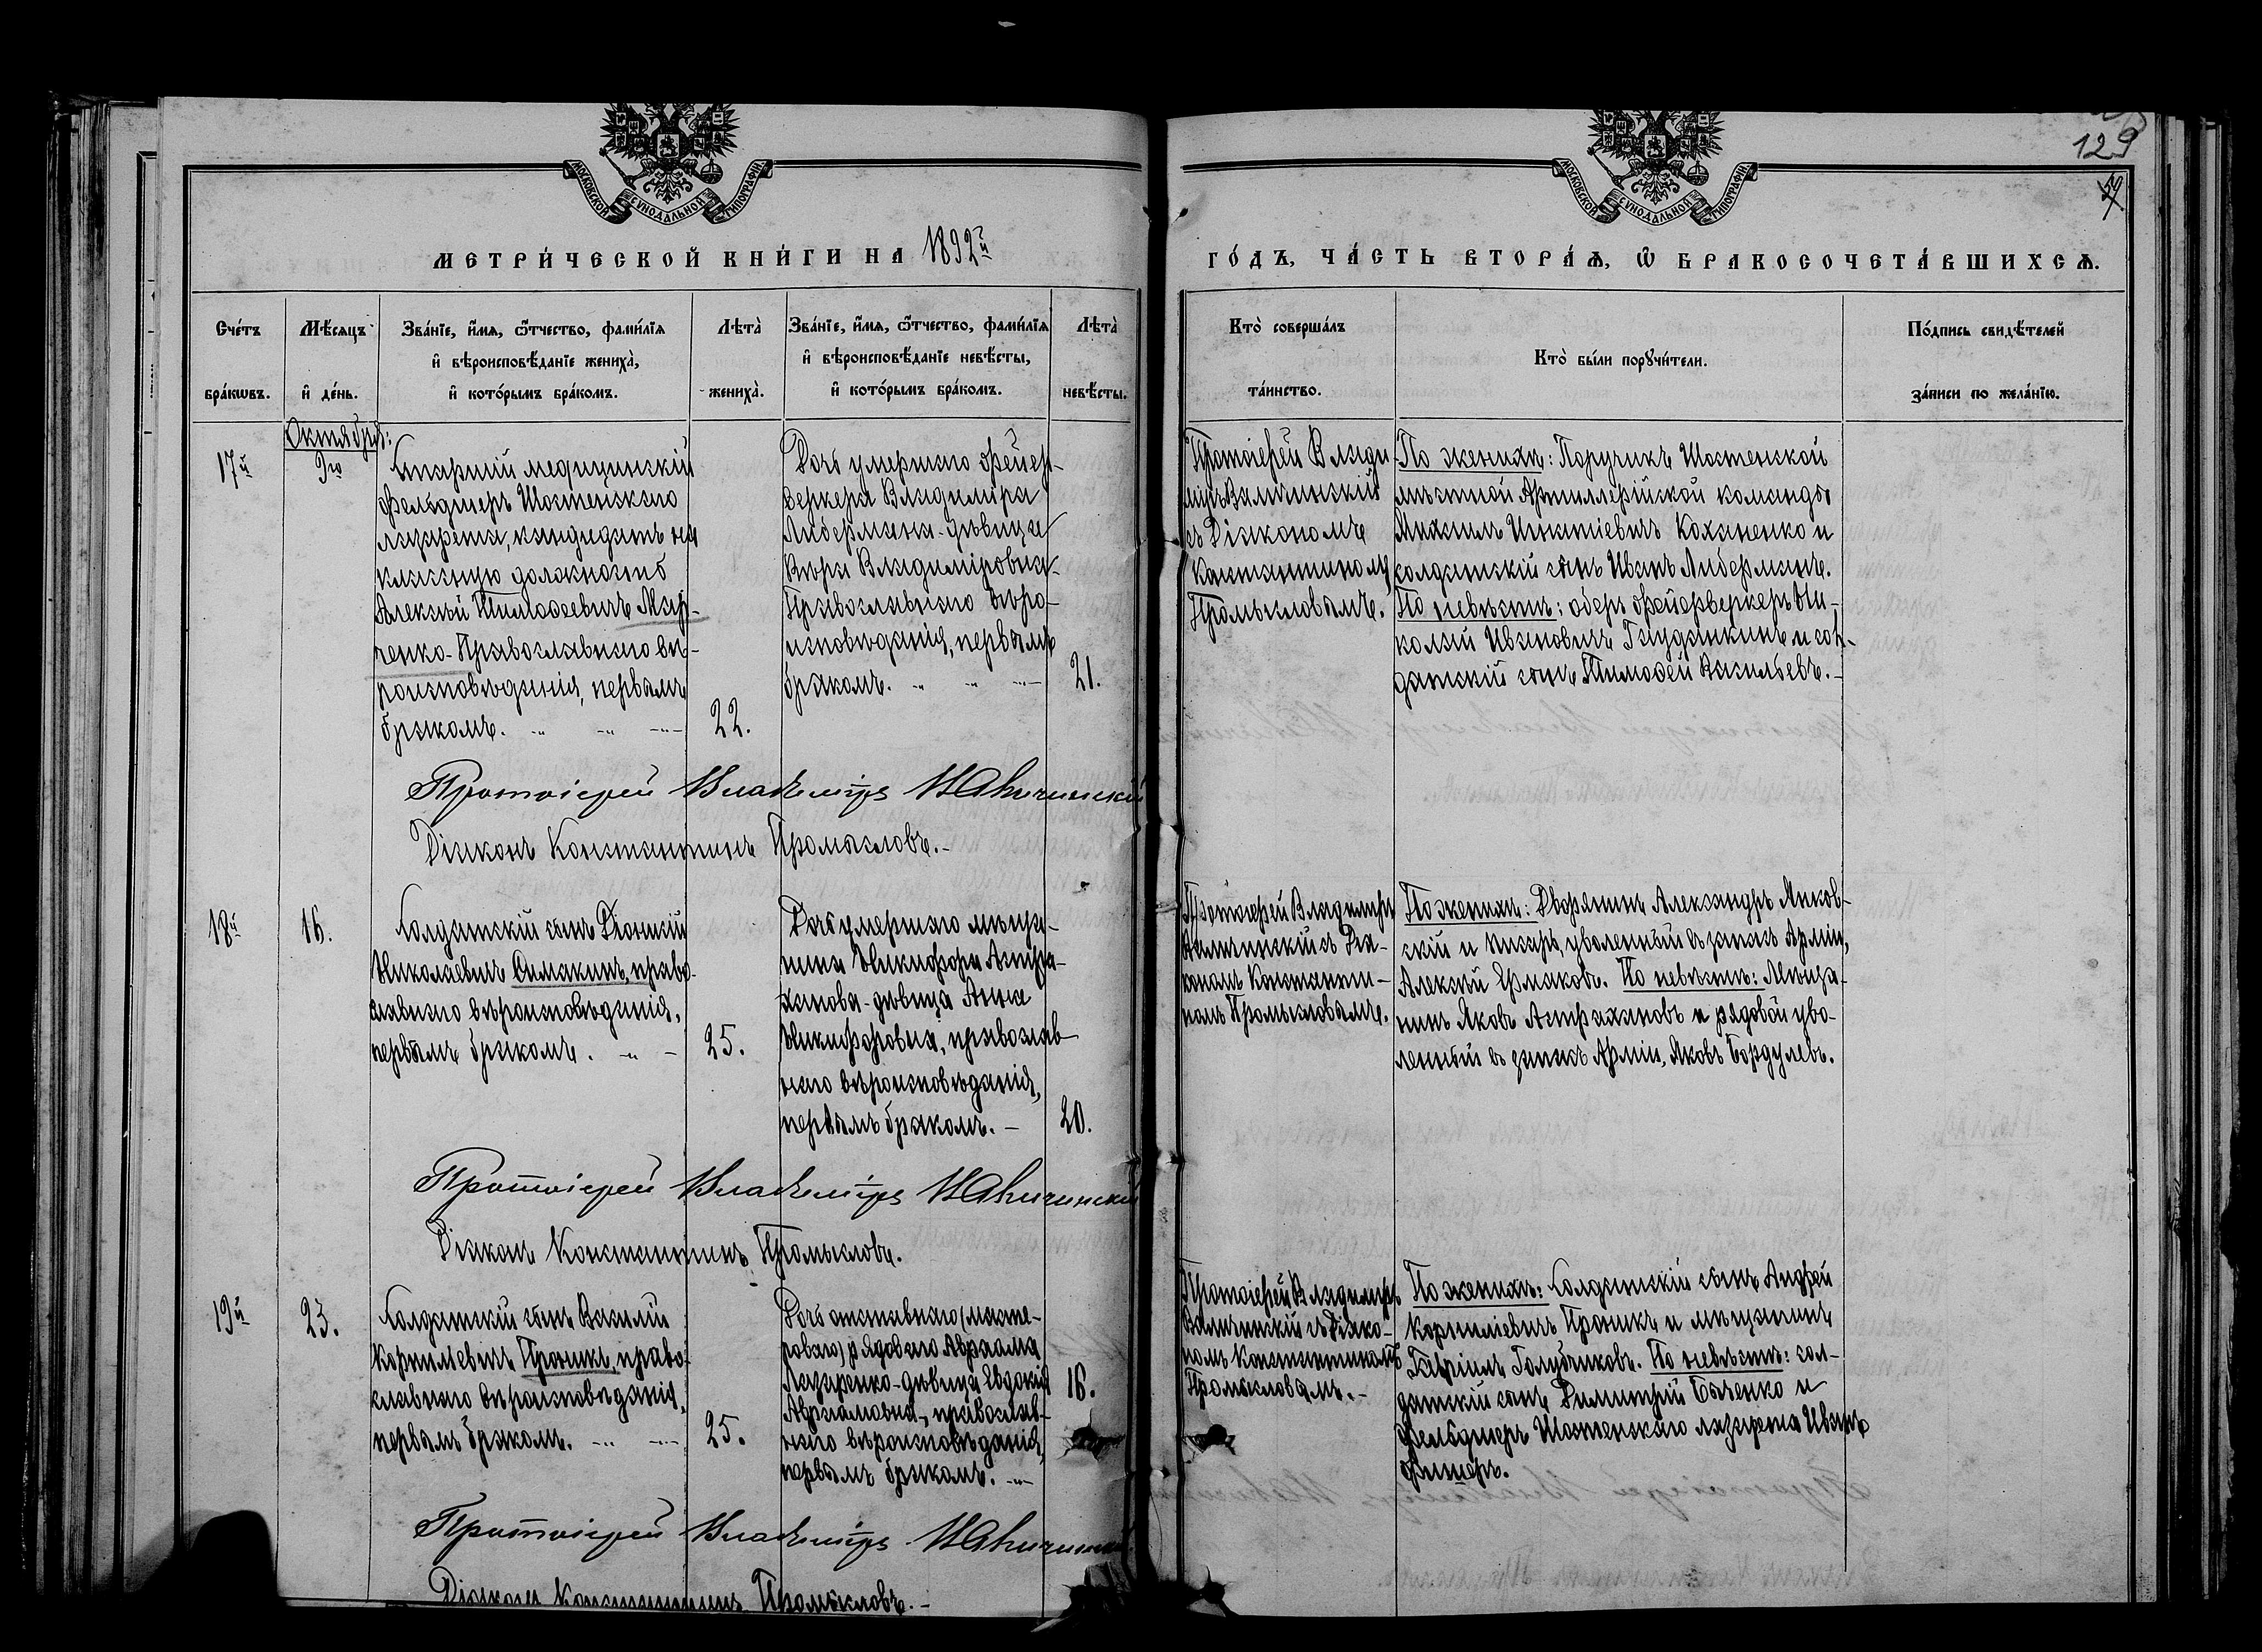 129
МОСКОВСКОЙ СУНОДАЛЬНОЙ ТИПОГРАФІИ.
МОСКОВСКОЙ СУНОДАЛЬНОЙ ТИПОГРАФІИ.
МЕТРИ́ЧЕСКОЙ КНИ́ГИ НА 1892й
ГО́ДЪ, ЧА́СТЬ ВТОРА́Ѧ, Ѽ БРАКОСОЧЕТА́ВШИХСѦ.
Сче́тъ бра́кѡвъ.
Мѣ́сѧцъ и҆ де́нь.
Зва́нїе, и҆́мѧ, ѻ҆́тчество, фами́лїѧ
и҆ вѣроисповѣ́данїе жениха̀,
и҆ кото́рымъ бра́комъ.
Лѣта̀ жениха̀.
Зва́нїе, и҆́мѧ, ѻ҆́тчество, фами́лїѧ
и҆ вѣроисповѣ́данїе невѣ́сты,
и҆ кото́рымъ бра́комъ.
Лѣта̀ невѣ́сты.
Кто̀ соверша́лъ
та́инство.
Кто̀ бы́ли порꙋчи́тели.
По́дпись свидѣ́телей
за́писи по жела́нїю.
17й
Октября:
9го
Старшій медицинскій
фельдшеръ Шостенскаго
лазарета, кандидатъ на
классную должность
Алексѣй Тимоѳеевичъ Мар-
ченко - Православнаго вѣ-
роисповѣданія, первымъ
бракомъ.
22.
Дочь умершаго фейер-
веркера Владиміра
Либермана - дѣвица
Вѣра Владиміровна -
Православнаго вѣро-
исповѣданія, первымъ
бракомъ.
21.
Протоіерей Влади-
міръ
съ Діакономъ
Константиномъ
Промысловымъ.
По женихѣ: Поручикъ Шостенской
мѣстной Артиллерійской команды
Михаилъ Игнатіевичъ Коханенко и
солдатскій сынъ Иванъ Либерманъ.
По невѣстѣ: оберъ фейерверкеръ Ни-
колай Ивановичъ и сол-
датскій сынъ Тимоѳей Васильевъ.-
Протоіерей Владиміръ
Діаконъ Константинъ Промысловъ.-
18й
16.
Солдатскій сынъ Діонисій
Николаевичъ Симакинъ, право-
славнаго вѣроисповѣданія,
первымъ бракомъ.
25.
Дочь умершаго мѣща-
нина Никифора Астра-
ханова - дѣвица Анна
Никифоровна, православ-
наго вѣроисповѣданія,
первымъ бракомъ. -
20.
Протоіерей Владиміръ
съ Діа-
кономъ Константи-
номъ Промысловымъ.
По женихѣ: Дворянинъ Александръ
скій и писарь, уволенный въ запасъ Арміи,
Алексѣй Ермаковъ. По невѣстѣ: Мѣща-
нинъ Яковъ Астрахановъ и рядовой уво-
ленный въ запасъ Арміи, Яковъ Бордулевъ.
Протоіерей Владиміръ
Діаконъ Константинъ Промысловъ.
19й
23.
Солдатскій сынъ Василій
Корниліевичъ Проникъ, право-
славнаго вѣроисповѣданія,
первымъ бракомъ.
25.
Дочь отставнаго (масте-
роваго) рядоваго Авраама
Лазаренко - дѣвица Евдокія
Авраамовна, православ-
наго вѣроисповѣданія,
первымъ бракомъ.
16.
Протоіерей Владиміръ
съ Діако-
номъ Константиномъ
Промысловымъ.-
По женихѣ: Солдатскій сынъ Андрей
Корниліевичъ Проникъ и мѣщанинъ
Гавріилъ Голубчиковъ. По невѣстѣ: сол-
датскій сынъ Димитрій Быченко и
фельдшеръ Шостенскаго лазарета Иванъ
Фишеръ.
Протоіерей Владиміръ
Діаконъ Константинъ Промысловъ.-